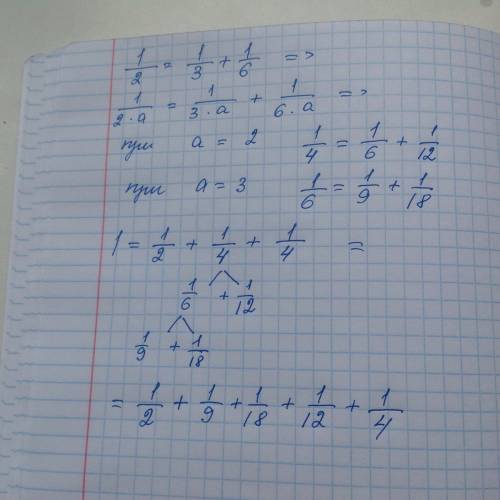 1/2 = 1/3 + 1/6 =>
1/2·a = 1/3·a + 1/6·a =>
при a = 2 1/4 = 1/6 + 1/12
при a = 3 1/6 = 1/9 + 1/18
1 = 1/2 + 1/4 + 1/4 =
1/6 + 1/12
1/9 + 1/18
= 1/2 + 1/9 + 1/18 + 1/12 + 1/4